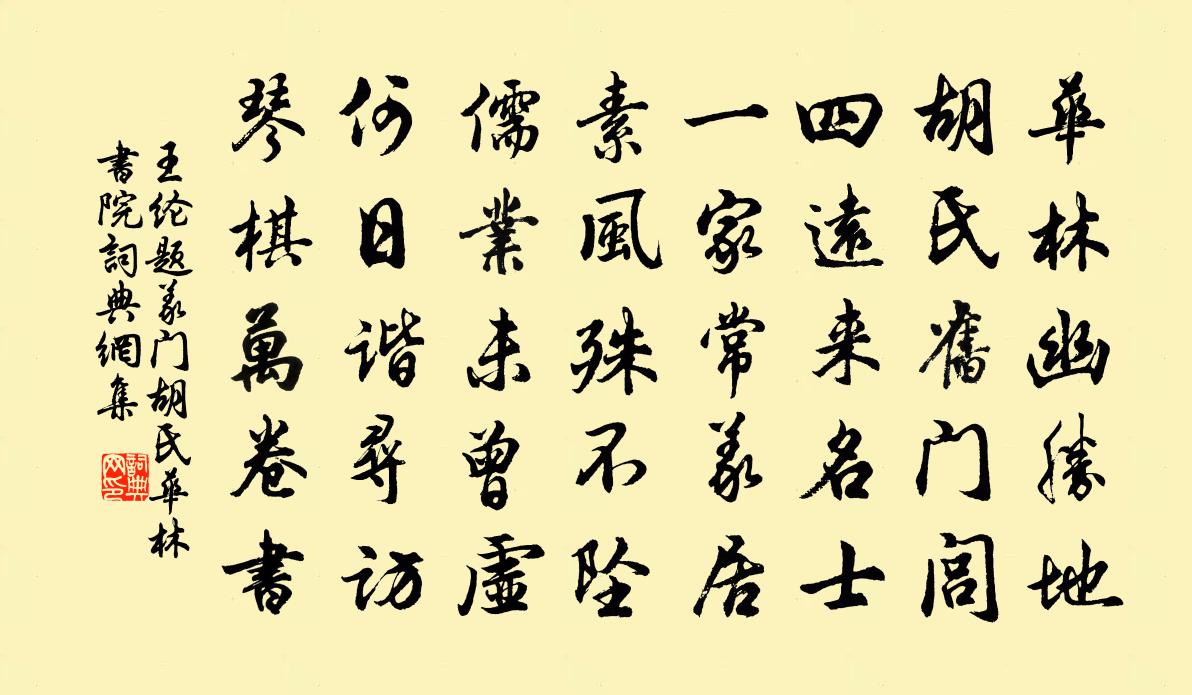 華林幽勝地
胡氏舊门閭
四遠来名士
一家常義居
素風殊不坠
儒業未曾虛
何日谐尋访
琴棋萬卷書
王纶题義门胡氏華林
書院詞典網集
詞典
网印